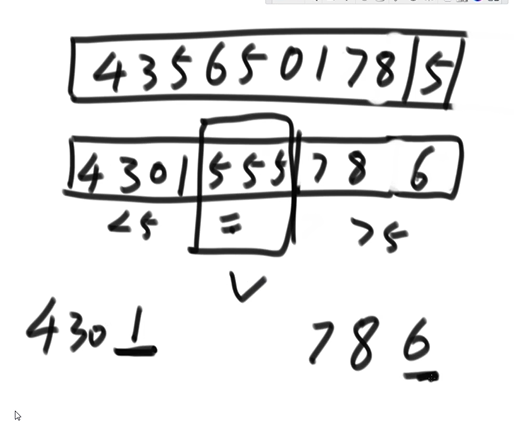 435650178|5
4301 555 786
<5 = >5
4301 786